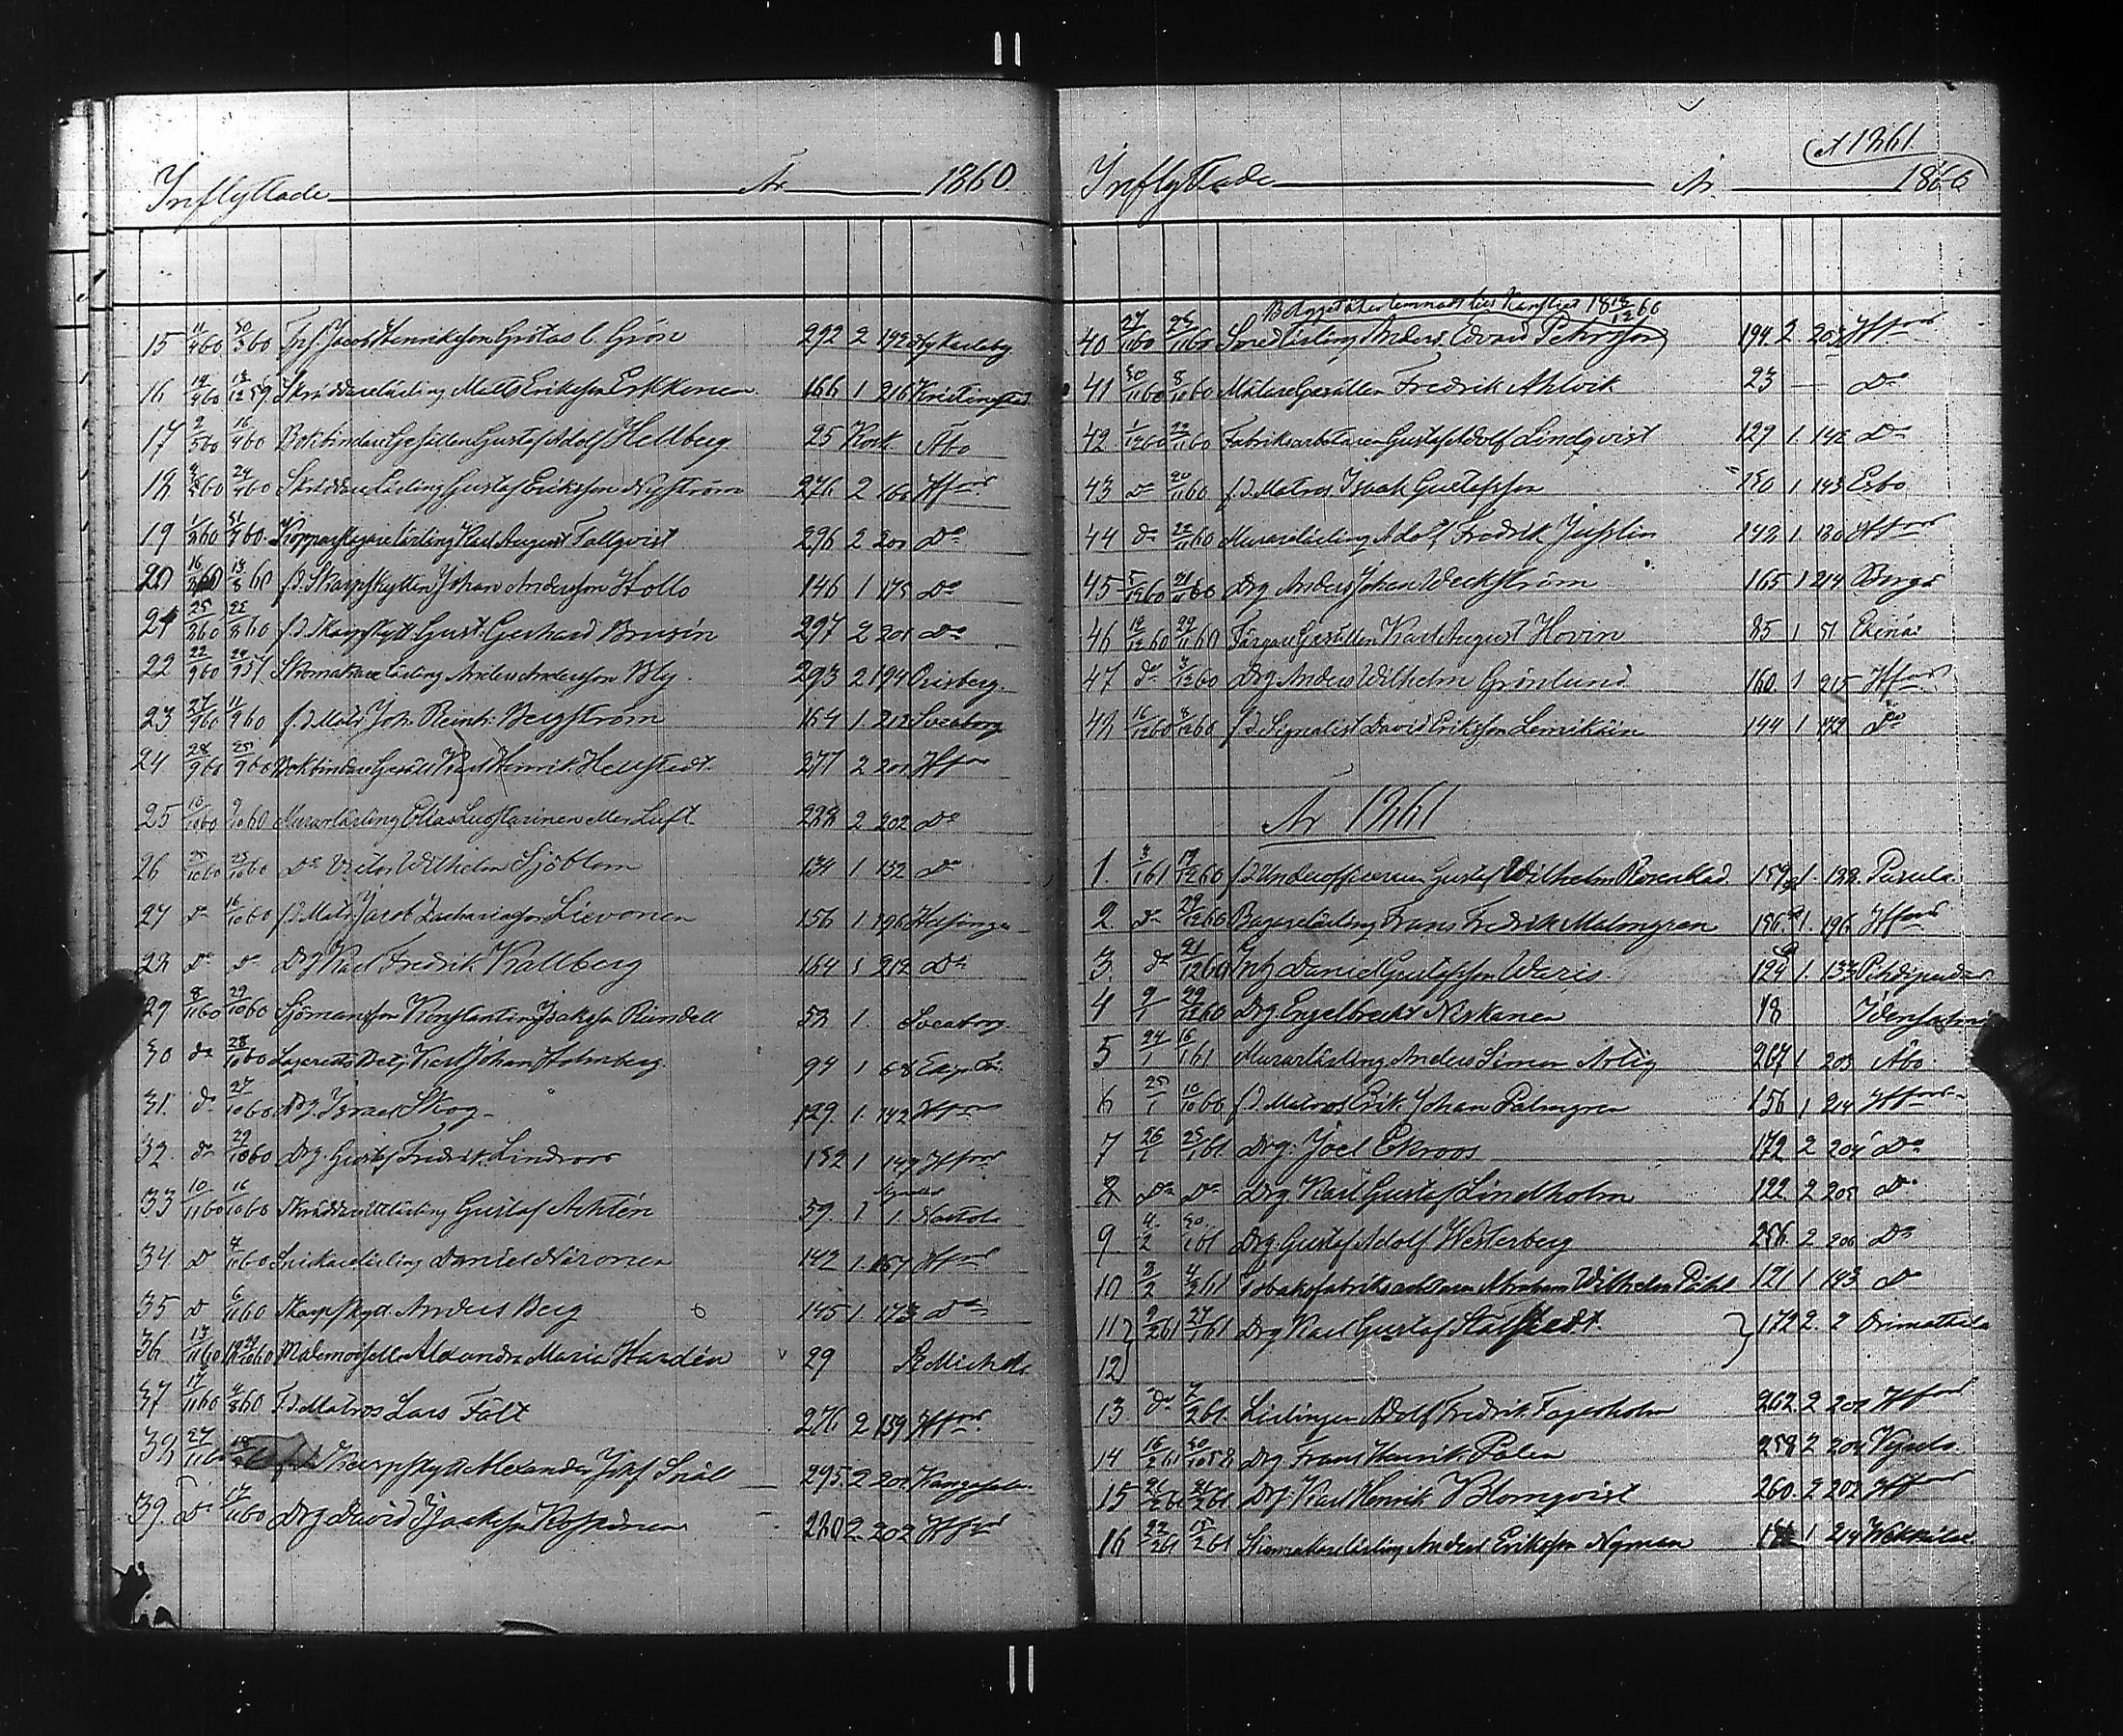 Inflyttade År 1860
15 11/4 60 30/3 60 Jacob Henriksson Grötas l. Grön 292 2 192 Karleby
16 14/4 60 13/12 59 Skräddarelärling Matts Eriksson Erkkonen 166 1 216 Kristinestad
17 2/5 60 16/4 60 Bokbindare Gesällen Gustaf Adolf Hellberg 25 Åbo
18 60 24/4 60 Skräddare Lärling Gustaf Eriksson Nyström 276 2 160 Hfors
19 60 60 Kopparslagare lärling Karl August Fallqvist 296 2 201 Do
20 16 13/8 60 f.d. Skarpskytten Johan Andersson Hollo 146 1 175 Do
21 25 60 25/8 60 f.d. Skarpskytt Gust. Gerhard Brusin 297 2 201 Do
22 22/9 60 24/9 57 Skomakare lärling Anders Andersson Bly 293 2 194 Orisberg
23 27/9 60 11/9 60 f.d. Matr Joh. Reinh. Bergström 164 1 212 Sveaborg
24 28/9 60 25/9 60 Bokbindare Gesäll Karl Henrik Hellstedt 277 2 201 Hfors
25 10/10 60 9/10 60 Murarlärling Elias Luostarinen eller Luft 222 2 202 Do
26 25/10 60 25/10 60 Do Victor Wilhelm Sjöblom 134 1 132 Do
27 Do 16/10 60 f.d. Matr Jacob Zachariasson Lievonen 156 1 196 Helsinge
28 Do Do Drg Karl Fredrik Kallberg 164 1 212 Do
29 8/11 60 29/10 60 Sjömanson Konstantin Isaksson Rundell 52 1 Sveaborg
30 Do 28/10 60 Karl Johan Holmberg 94 1 68
31 Do 27/10 60 Drg. Israel Skog 129 1 142 Hfors
32 Do 29/10 60 Drg. Gustaf Fredrik Lindroos 152 1 149 Hfors
33 10/11 60 16/10 60 Skräddarelärling Gustaf Achtén 59 1 1 Nastola
34 Do 4/11 60 Snickarelärling Daniel Nironen 142 1 157 Hfors
35 Do 6/11 60 Skarpskytt Anders Berg 145 1 173 Do
36 13/11 60 Mademoiselle Alexandra Maria Hardén 29 St Michels
37 17/11 60 4/8 60 F.d. Matros Lars Fält 276 2 159 Hfors
38 27/11 60 Skarpskytt Alexander Josef Snäll 295 2 201 Kangasala
39 Do 17/11 60 Drg David Isaksson Koskinen 220 2 202 Hfors
et 1861
Inflyttade År 1860
Betyget återlemnadt 18 12/12 60
40 27/11 60 26/11 60 Smedlärling Anders Edvard Petersson 194 2 203 Hfors
41 30/11 60 8/10 60 Målare Gesällen Fredrik Ahlvik 23 — Do
42 1/12 60 22/11 60 Fabriksarbetaren Gustaf Adolf Lindqvist 129 1 142 Do
43 Do 20/11 60 f.d. Matros Isaak Gustafsson 150 1 143 Esbo
44 Do 22/11 60 Murarelärling Adolf Fredrik Jusslin 142 1 130 Hfors
45 5/12 60 21/11 60 Drg Anders Johan Weckström 165 1 214 Borgå
46 12/12 60 29/11 60 Färgare Gesällen Karl August Hovin 85 1 51 Ekenäs
47 Do 3/12 60 Drg Anders Wilhelm Grönlund 160 1 215 Hfors
48 16/12 60 8/12 60 f.d. Signalist David Eriksson Lemikäin 144 1 142 Do
År 1861
1. 3/1 61 19/12 60 f.d. Underofficeren Gustaf Wilhelm Rosenblad 159 1 122 Pusula
2. Do 29/12 60 Bagarelärling Frans Fredrik Malmgren 156 1 196 Hfors
3. Do 21/12 60 Daniel Gustafsson Waris 124 1 133
4 9/1 29/12 60 Drg Engelbrecht Niskanen 48 Idensalmi
5 24/1 16/1 61 Murarlärling Anders Simon Artig 267 1 203 Åbo
6 25/1 10/10 60 f.d. Matros Erik Johan Palmgren 156 1 214 Hfors
7 26/1 25/1 61 Drg. Joel Ekroos 172 2 204 Do
8 Do Do Drg Karl Gustaf Lindholm 122 2 205 Do
9 4/2 30/1 61 Drg Gustaf Adolf Westerberg 256 2 206 Do
10 8/2 4/2 61 Tobaksfabriksarbetaren Abraham Wilhelm Pihl 121 1 193 Do
11 9/2 61 27/1 61 Drg Karl Gustaf Stålstedt 172 2 2 Orimattila
12
13 Do 7/2 61 Lärlingen Adolf Fredrik Fagerholm 262 2 202 Hfors
14 16/2 61 30/10 58 Drg Frans Henrik Polen 259 2 204
15 21/2 61 21/2 61 Drg. Karl Henrik Blomqvist 260 2 202 Hfors
16 22/2 61 15/2 61 Skomakarelärling Anders Eriksson Nyman 1 214